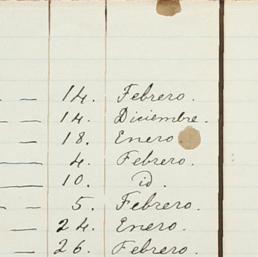 14. Febrero.
— 14. Diciembre.
— 18. Enero.
— 4. Febrero.
— 10. id.
— — 5. Febrero.
— 24. Enero.
— 26. Febrero.